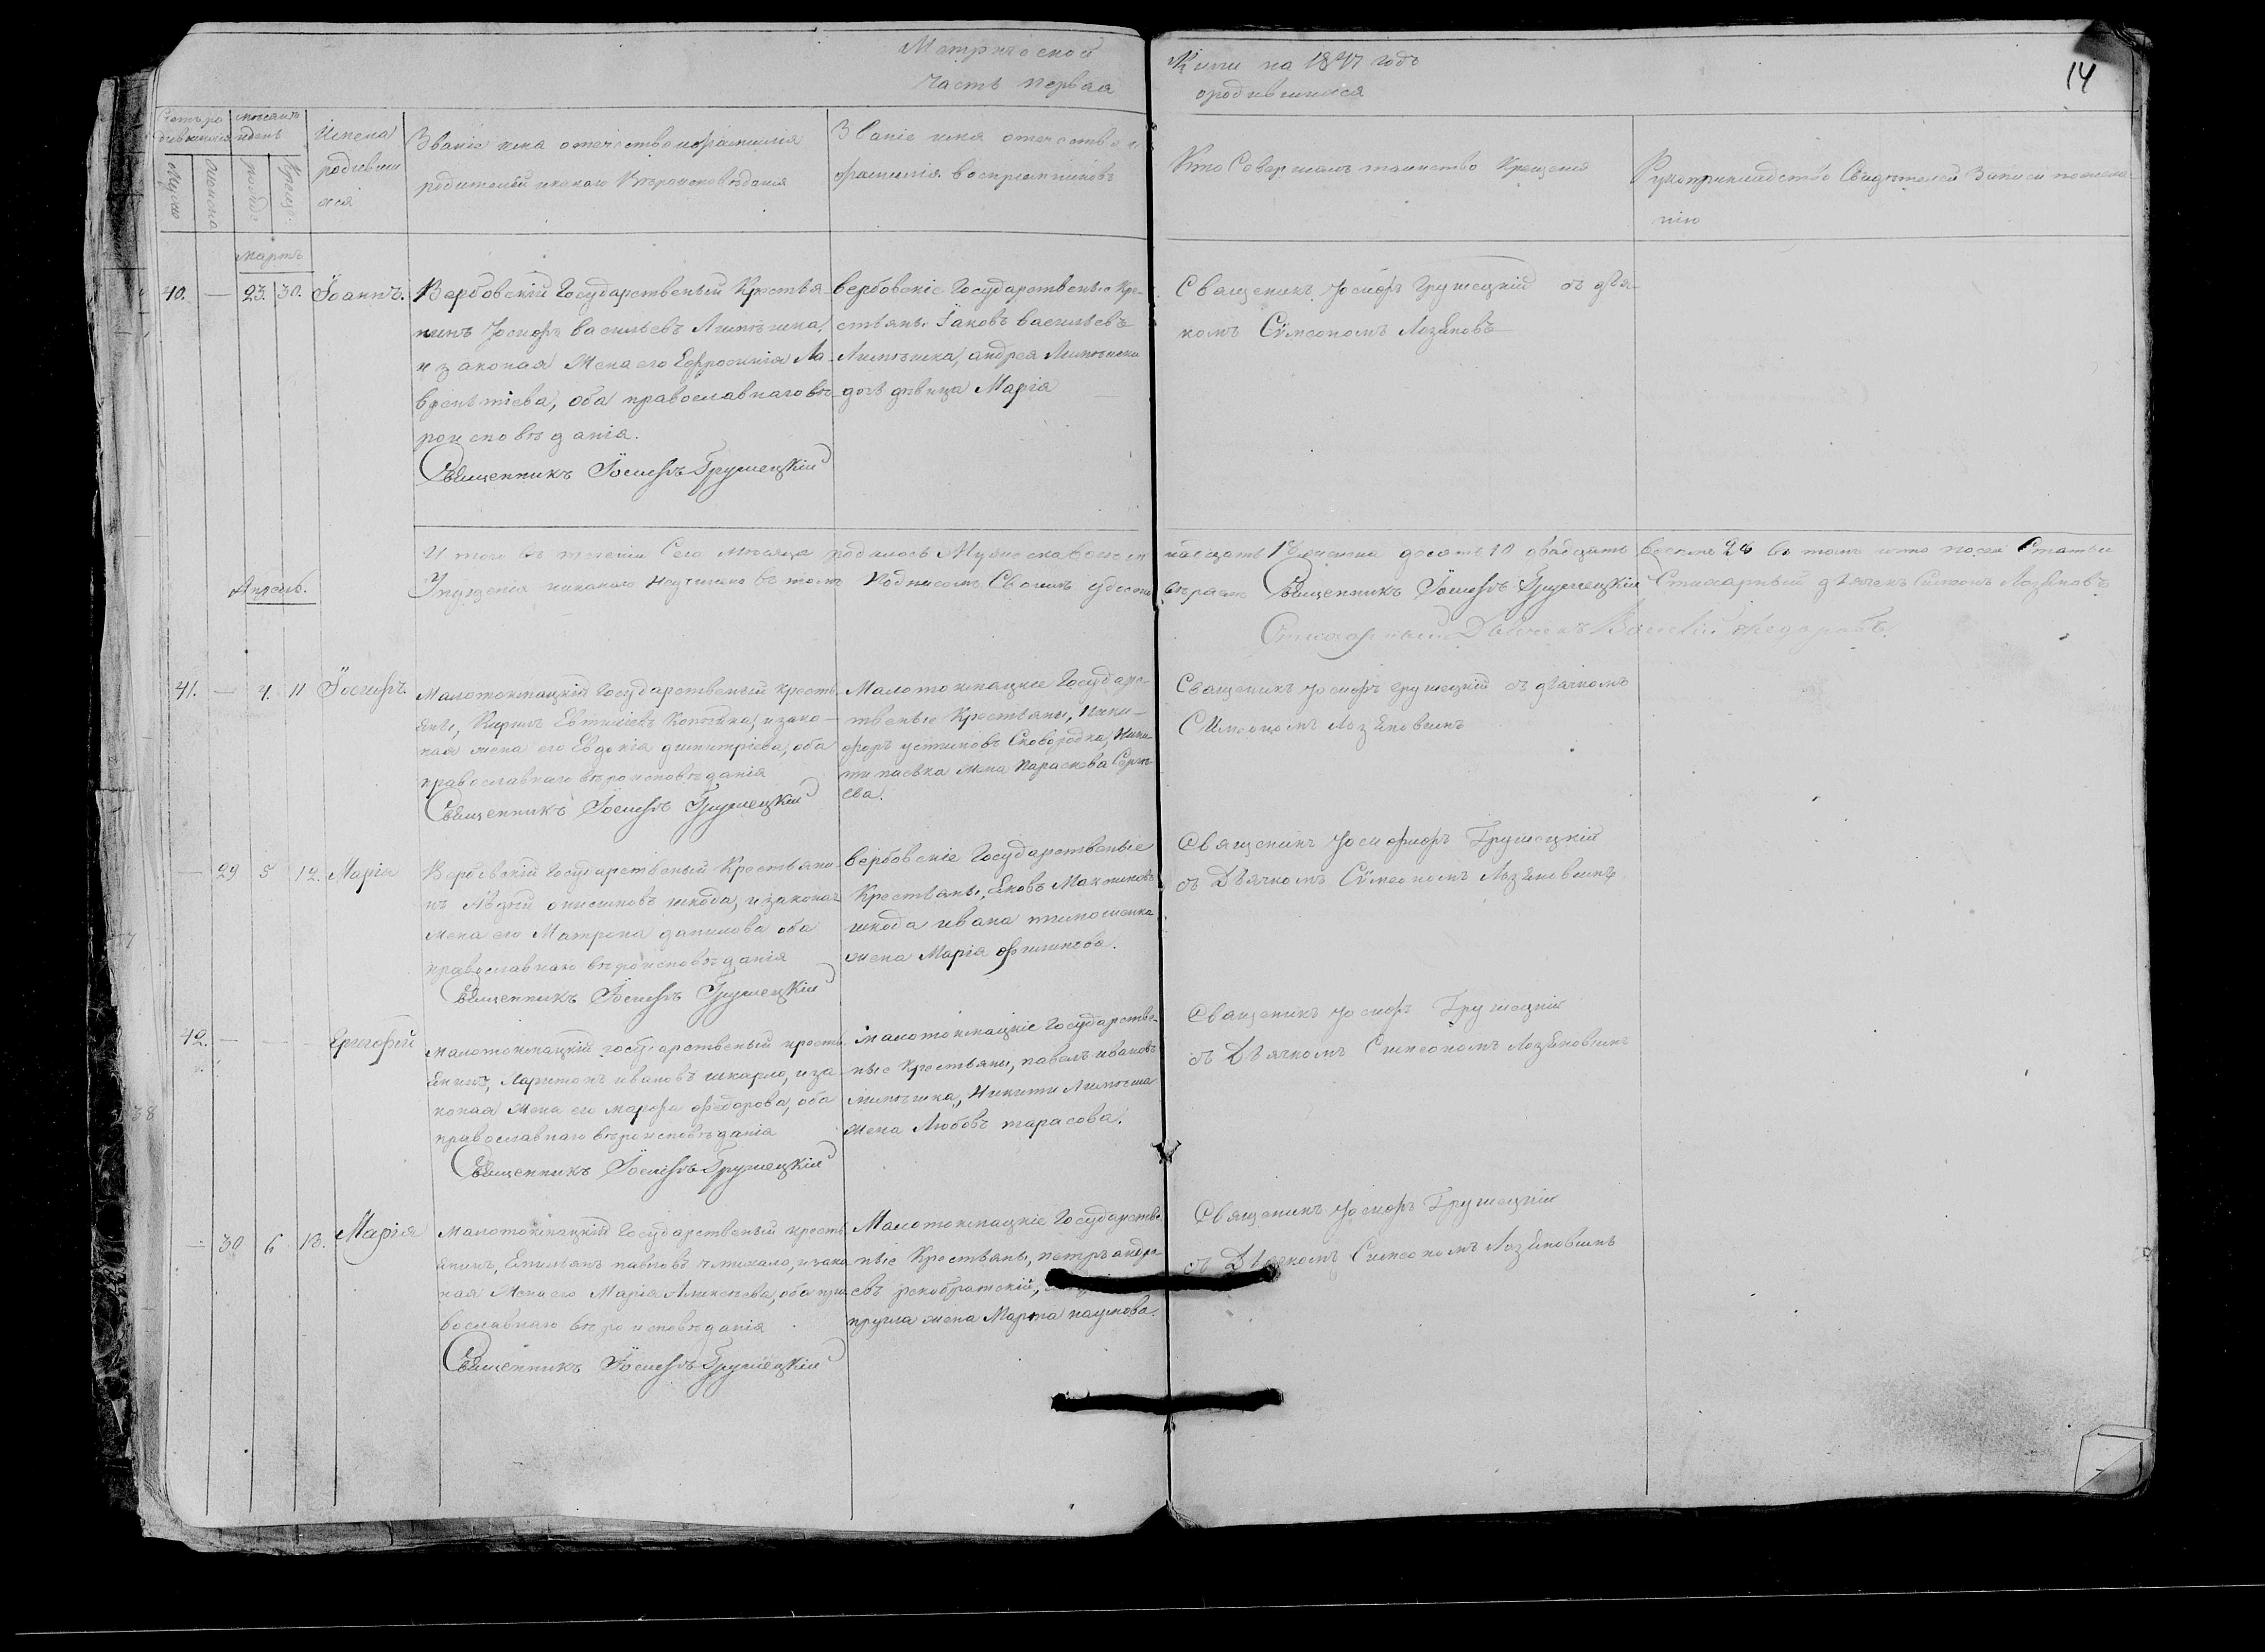 Метрической
Часть первая
Книги на 1847 годъ
о родившихся
14
Счетъ ро
дившихся
Мѣсяцъ
и день
Мужеска
Женска
рожд:
Крещ:
Имена
родивши
хся
Званіе имя отечество и фамилія
родителей и какаго Вѣроисповѣданія
Званіе имя отечество и
фамилія воспріемниковъ
Кто Совершалъ таинство Крещенія
Рукоприкладство Свидѣтелей Записи по жела
нію
Мартъ
40. — 23. 30. Іоаннъ.
Вербовскій Государственый Крестья
нинъ Іосифъ васильевъ
и законая Жена его Ефросинія Ла
врентіева, оба православнаго вѣ
роисповѣданія.
Священникъ Іосифъ Грушецкій
вербовскіе Государственые Кре
стьяне Іаковъ васильевъ
андрея
дочь дѣвица Марія
Священикъ Іосифъ Грушецкій съ дья
комъ Сѵмеономъ
Итого въ теченіи Сего мѣсяца родилось Мужеска восем надцать 18 женска десять 10 двадцать восемь 28 въ томъ что посей Статьи
никакаго неучинено въ томъ Подписомъ Своимъ удосто вѣряемъ Священникъ Іосифъ Грушецкій Стихарный дьячекъ
Апрель.
41. — 4. 11 Іосифъ.
Малотокмацкій Государственый кресть
янинъ, Кирилъ Евтихіевъ и зако
ная жена его Евдокія димитріева, оба
православнаго вѣроисповѣданія
Священникъ Іосифъ Грушецкій
Малотокмацкіе Государс
твеные Крестьяны, Ники
форъ устиновъ Сковородка, Ники
жена Параскева Сергѣ
ева.
Священикъ Іосифъ Грушецкій съ дьячкомъ
Сѵмеономъ
— 29 5 12. Марія
Вербовскій Государственый Крестьяни
нъ шкода, и законая
жена его Матрона данилова оба
православнаго вѣроисповѣданія
Священникъ Іосифъ Грушецкій
вербовскіе Государственые
Крестьяне, Яковъ Максимовъ
шкода ивана тимошенка
жена Марія филипова.
Священикъ Грушецкій
съ Дьячкомъ Сѵмеономъ
42. — — — Григорій
малотокмацкій государственый кресть
янинъ, Харитонъ ивановъ и за
коная жена его марфа федорова, оба
православнаго вѣроисповѣданія
Священникъ Іосифъ Грушецкій
малотокмацкіе Государстве
ные крестьяны, павелъ ивановъ
Никити
жена Любовь тарасова.
Священикъ Іосифъ Грушецкій
съ Дьячкомъ Симеономъ
— 30 6 13. Марія
малотокмацкій Государственый кресть
янинъ, Емильянъ павловъ и зако
ная Жена его Марія Алексѣева, оба пра
вославнаго вѣроисповѣданія
Священникъ Іосифъ Грушецкій
Малотокмацкіе Государстве
ные Крестьяне, петръ андре
евъ
жена Марта наумова.
Священикъ Іосифъ Грушецкій
съ Дьячкомъ Симеономъ